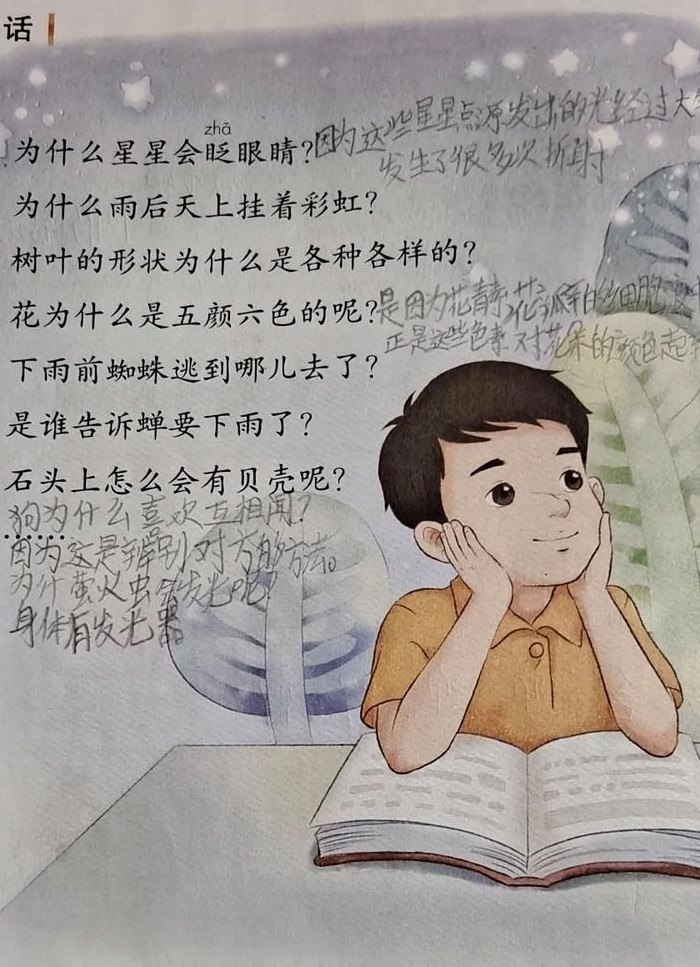 话
zhǎ
为什么星星会眨眼睛?因为这些星星点源发出的光经过大
发生了很多次折射
为什么雨后天上挂着彩虹?
树叶的形状为什么是各种各样的?
花为什么是五颜六色的呢?是因为花青素,花瓣的细胞
正是这些色素对花朵的颜色起
下雨前蜘蛛逃到哪儿去了?
是谁告诉蝉要下雨了?
石头上怎么会有贝壳呢?
狗为什么喜欢互相闻?
因为这是辨别对方的方法。
为什萤火虫会发光呢?
身体有发光器